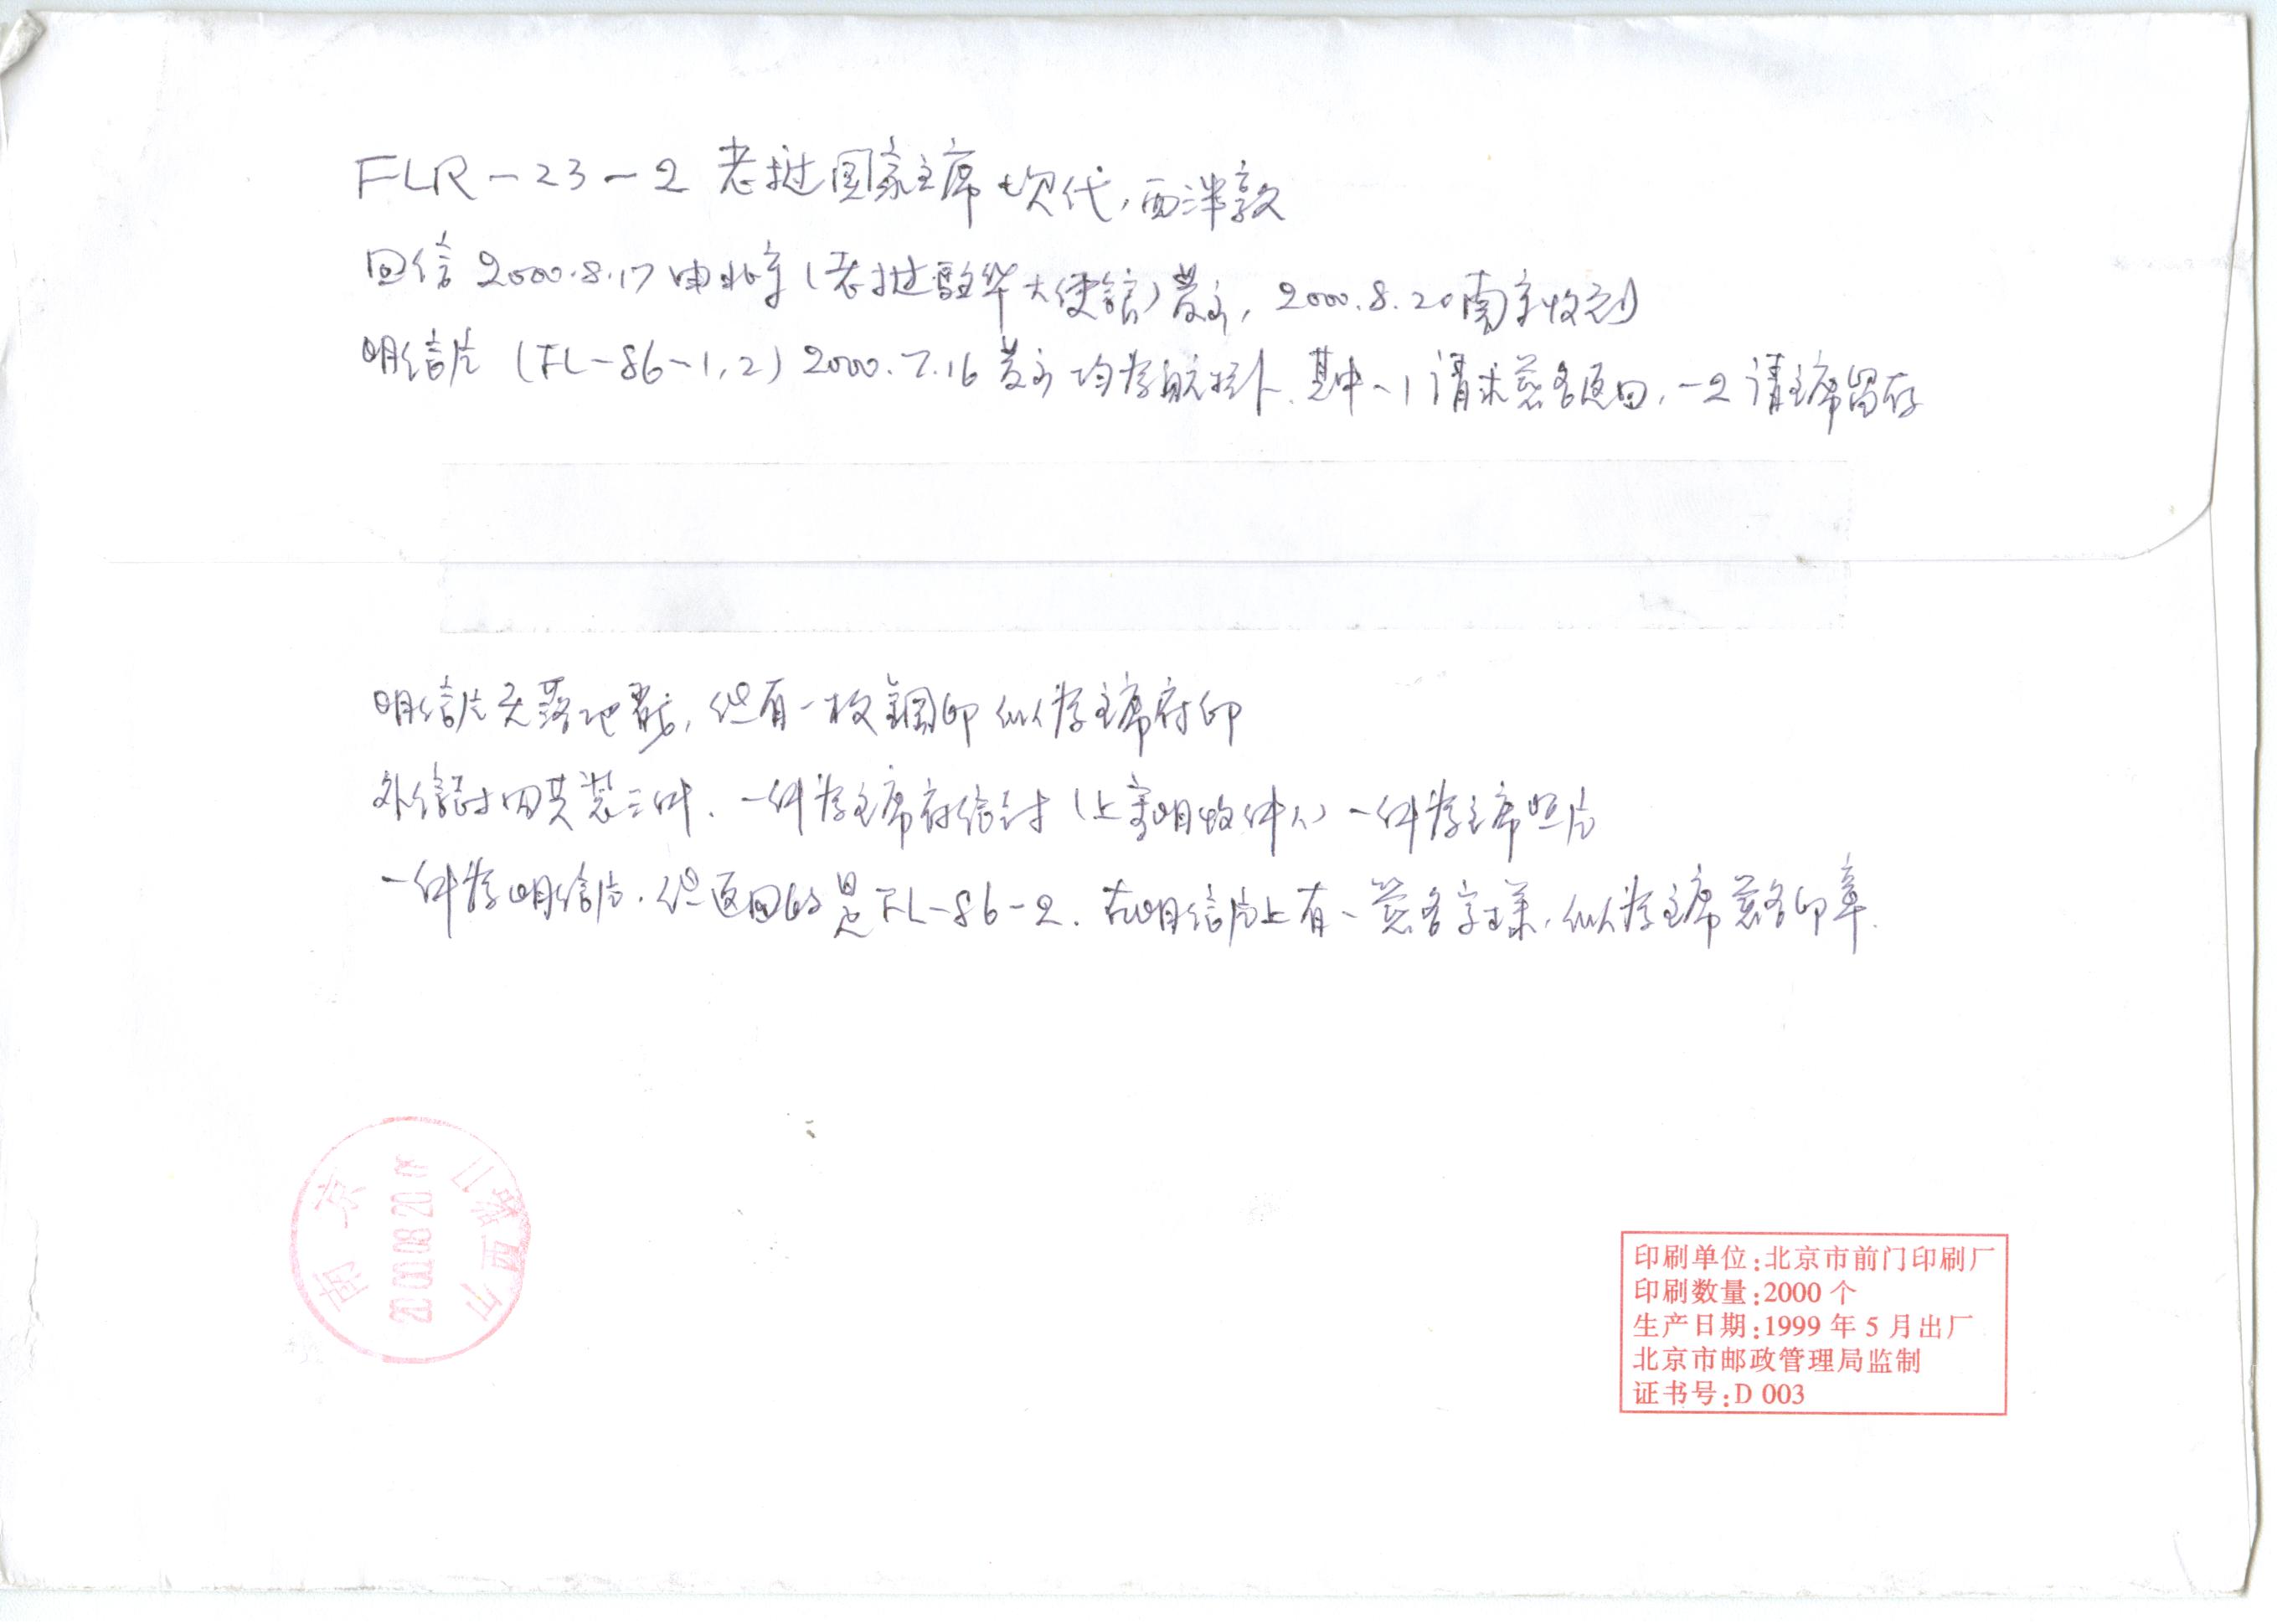 FLR-23-2 老挝国家主席 坎代·西潘敦
回信 2000.8.17 由北京(老挝驻华大使馆)发出, 2000.8.20南京收到
明信片 (FL-86-1,2) 2000.7.16 发出 均为航挂. 其中-1请求签名返回, -2 请主席留存
明信片无落地戳, 但有一枚钢印 似为主席府印
外信封内共装三件. 一件为主席府信封(上写明收件人) 一件为主席照片
一件为明信片. 但返回的是FL-86-2. 在明信片上有一签名字样, 似为主席签名印章.
南京
2000.08.20
山西路
印刷单位:北京市前门印刷厂
印刷数量:2000 个
生产日期:1999 年 5 月出厂
北京市邮政管理局监制
证书号:D 003